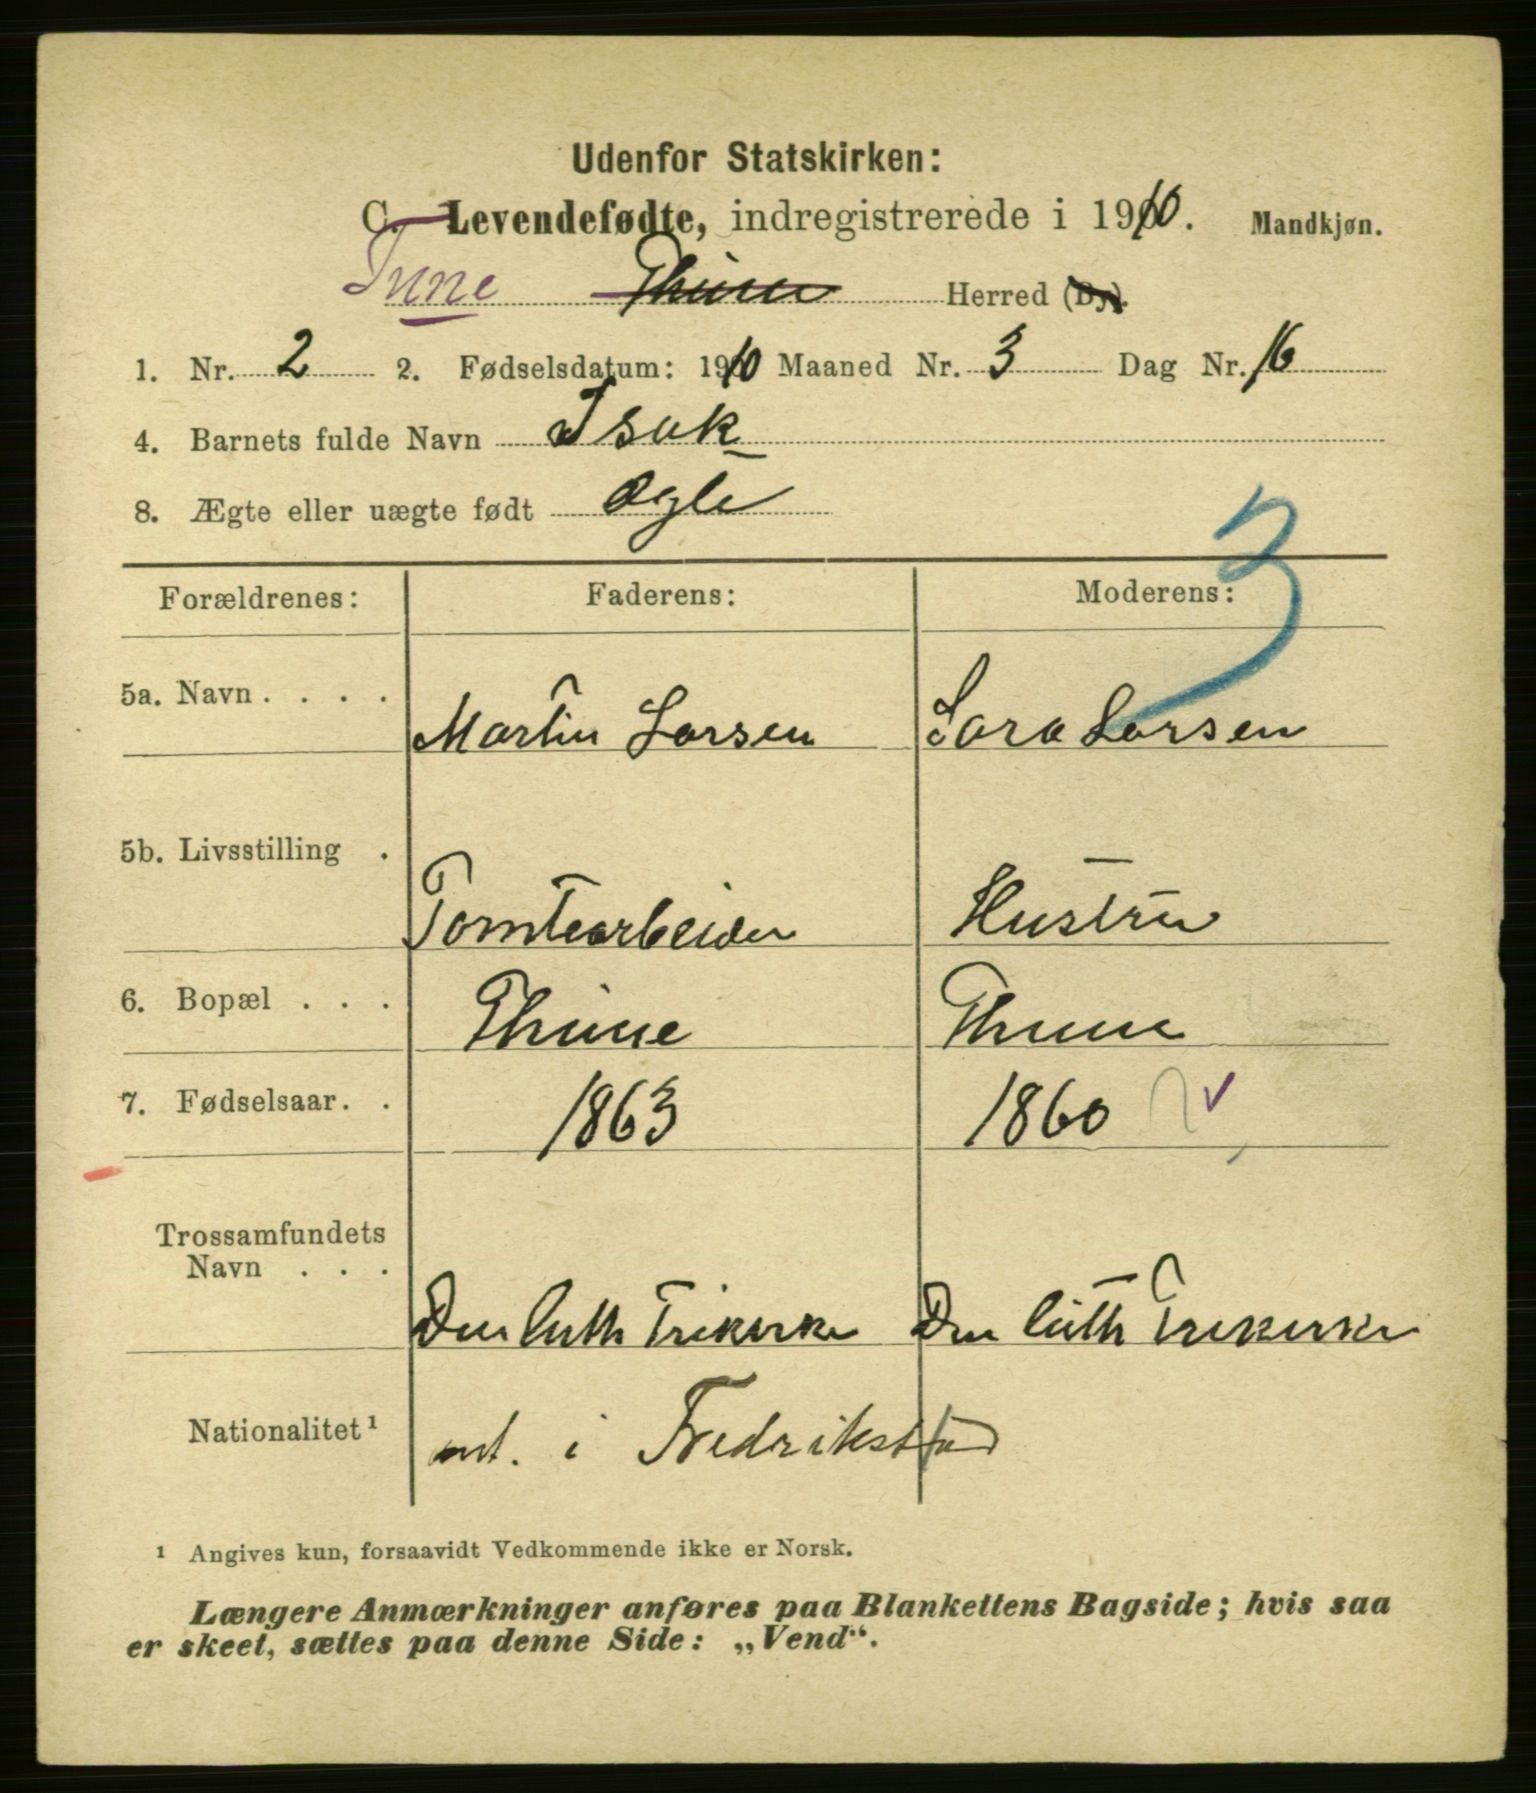 Udenfor Statskirken:
C. Levendefødte, indregistrerede i 1910. Mandkjøn.
Tune Thune Herred (By).
1. Nr. 2 2. Fødselsdatum: 1910 Maaned Nr. 3 Dag Nr. 16
4. Barnets fulde Navn Isak
8. Ægte eller uægte født Ægte
3
Forældrenes: Faderens: Moderens:
5a. Navn . . . . Martin Larsen Sara Larsen
5b. Livsstilling . Tomtearbeider Hustru
6. Bopæl . . . Thune Thune
7. Fødselsaar . . 1863 1860 ✓
Trossamfundets
Navn . . . Den luth Frikirke Den luth Frikirke
Nationalitet¹ i Fredrikstad
¹ Angives kun, forsaavidt Vedkommende ikke er Norsk.
Længere Anmærkninger anføres paa Blankettens Bagside; hvis saa
er skeet, sættes paa denne Side: „Vend“.